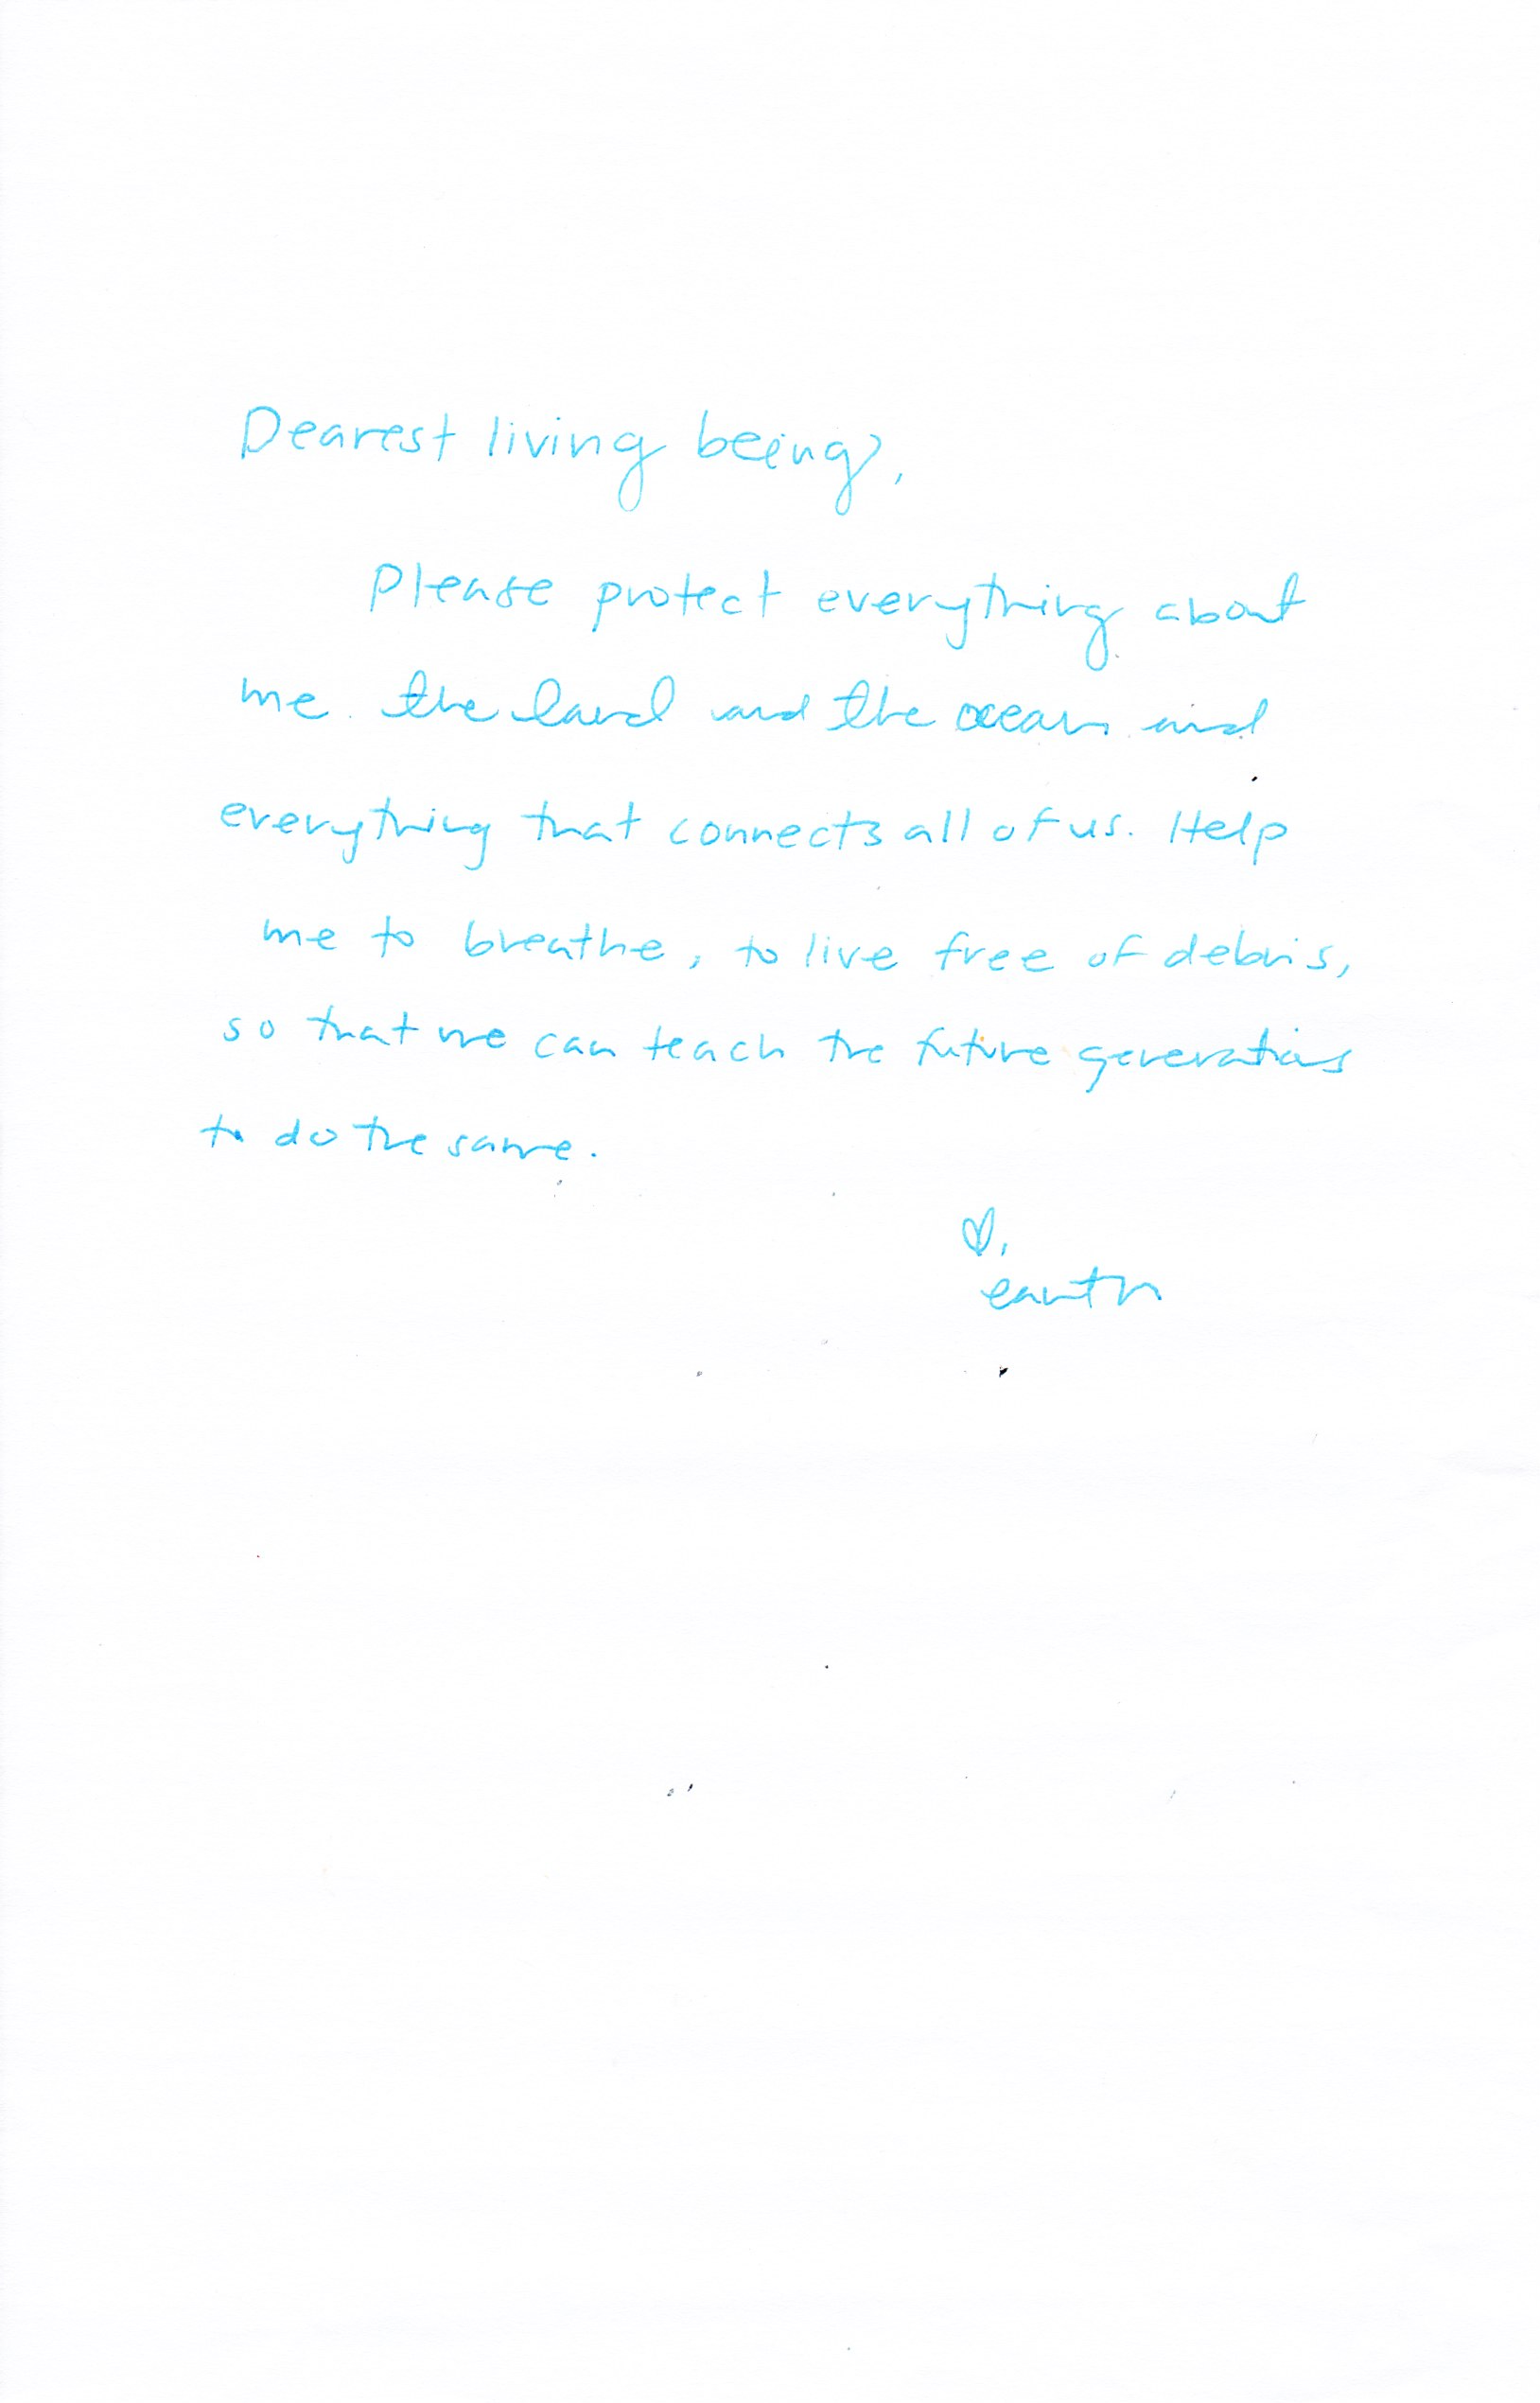 Dearest living beings,
Please protect everything about
me. the land and the ocean and
everything that connects all of us. Help
me to breathe, to live free of debris,
so that we can teach the future generations
to do the same.
♡,
earth